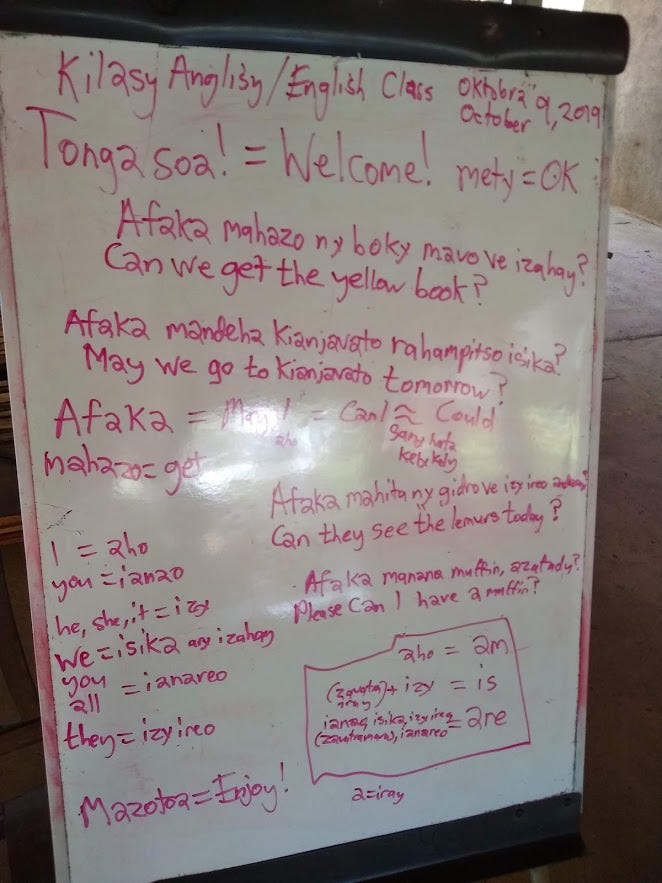 Kilasy Anglisy / English Class Oktobra
October 9, 2019
Tonga soa! = Welcome! mety = OK
Afaka mahazo ny boky mavo ve izahay?
Can we get the yellow book?
Afaka mandeha Kianjavato rahampitso isika?
May we go to Kianjavato tomorrow?
Afaka = May I = Can I ≈ Could
aho samy hafa
kely kely
mahazo = get
Afaka mahita ny gidro ve izy ireo
Can they see the lemurs today?
I = aho
you = ianao
he, she, it = izy
we = isika ary izahay
you
all = ianareo
they = izy ireo
Afaka manana muffin, azafady?
Please Can I have a muffin?
aho = am
(zavatra) + izy = is
iray
isika, izy ireo = are
ianareo
a = iray
Mazotoa = Enjoy!